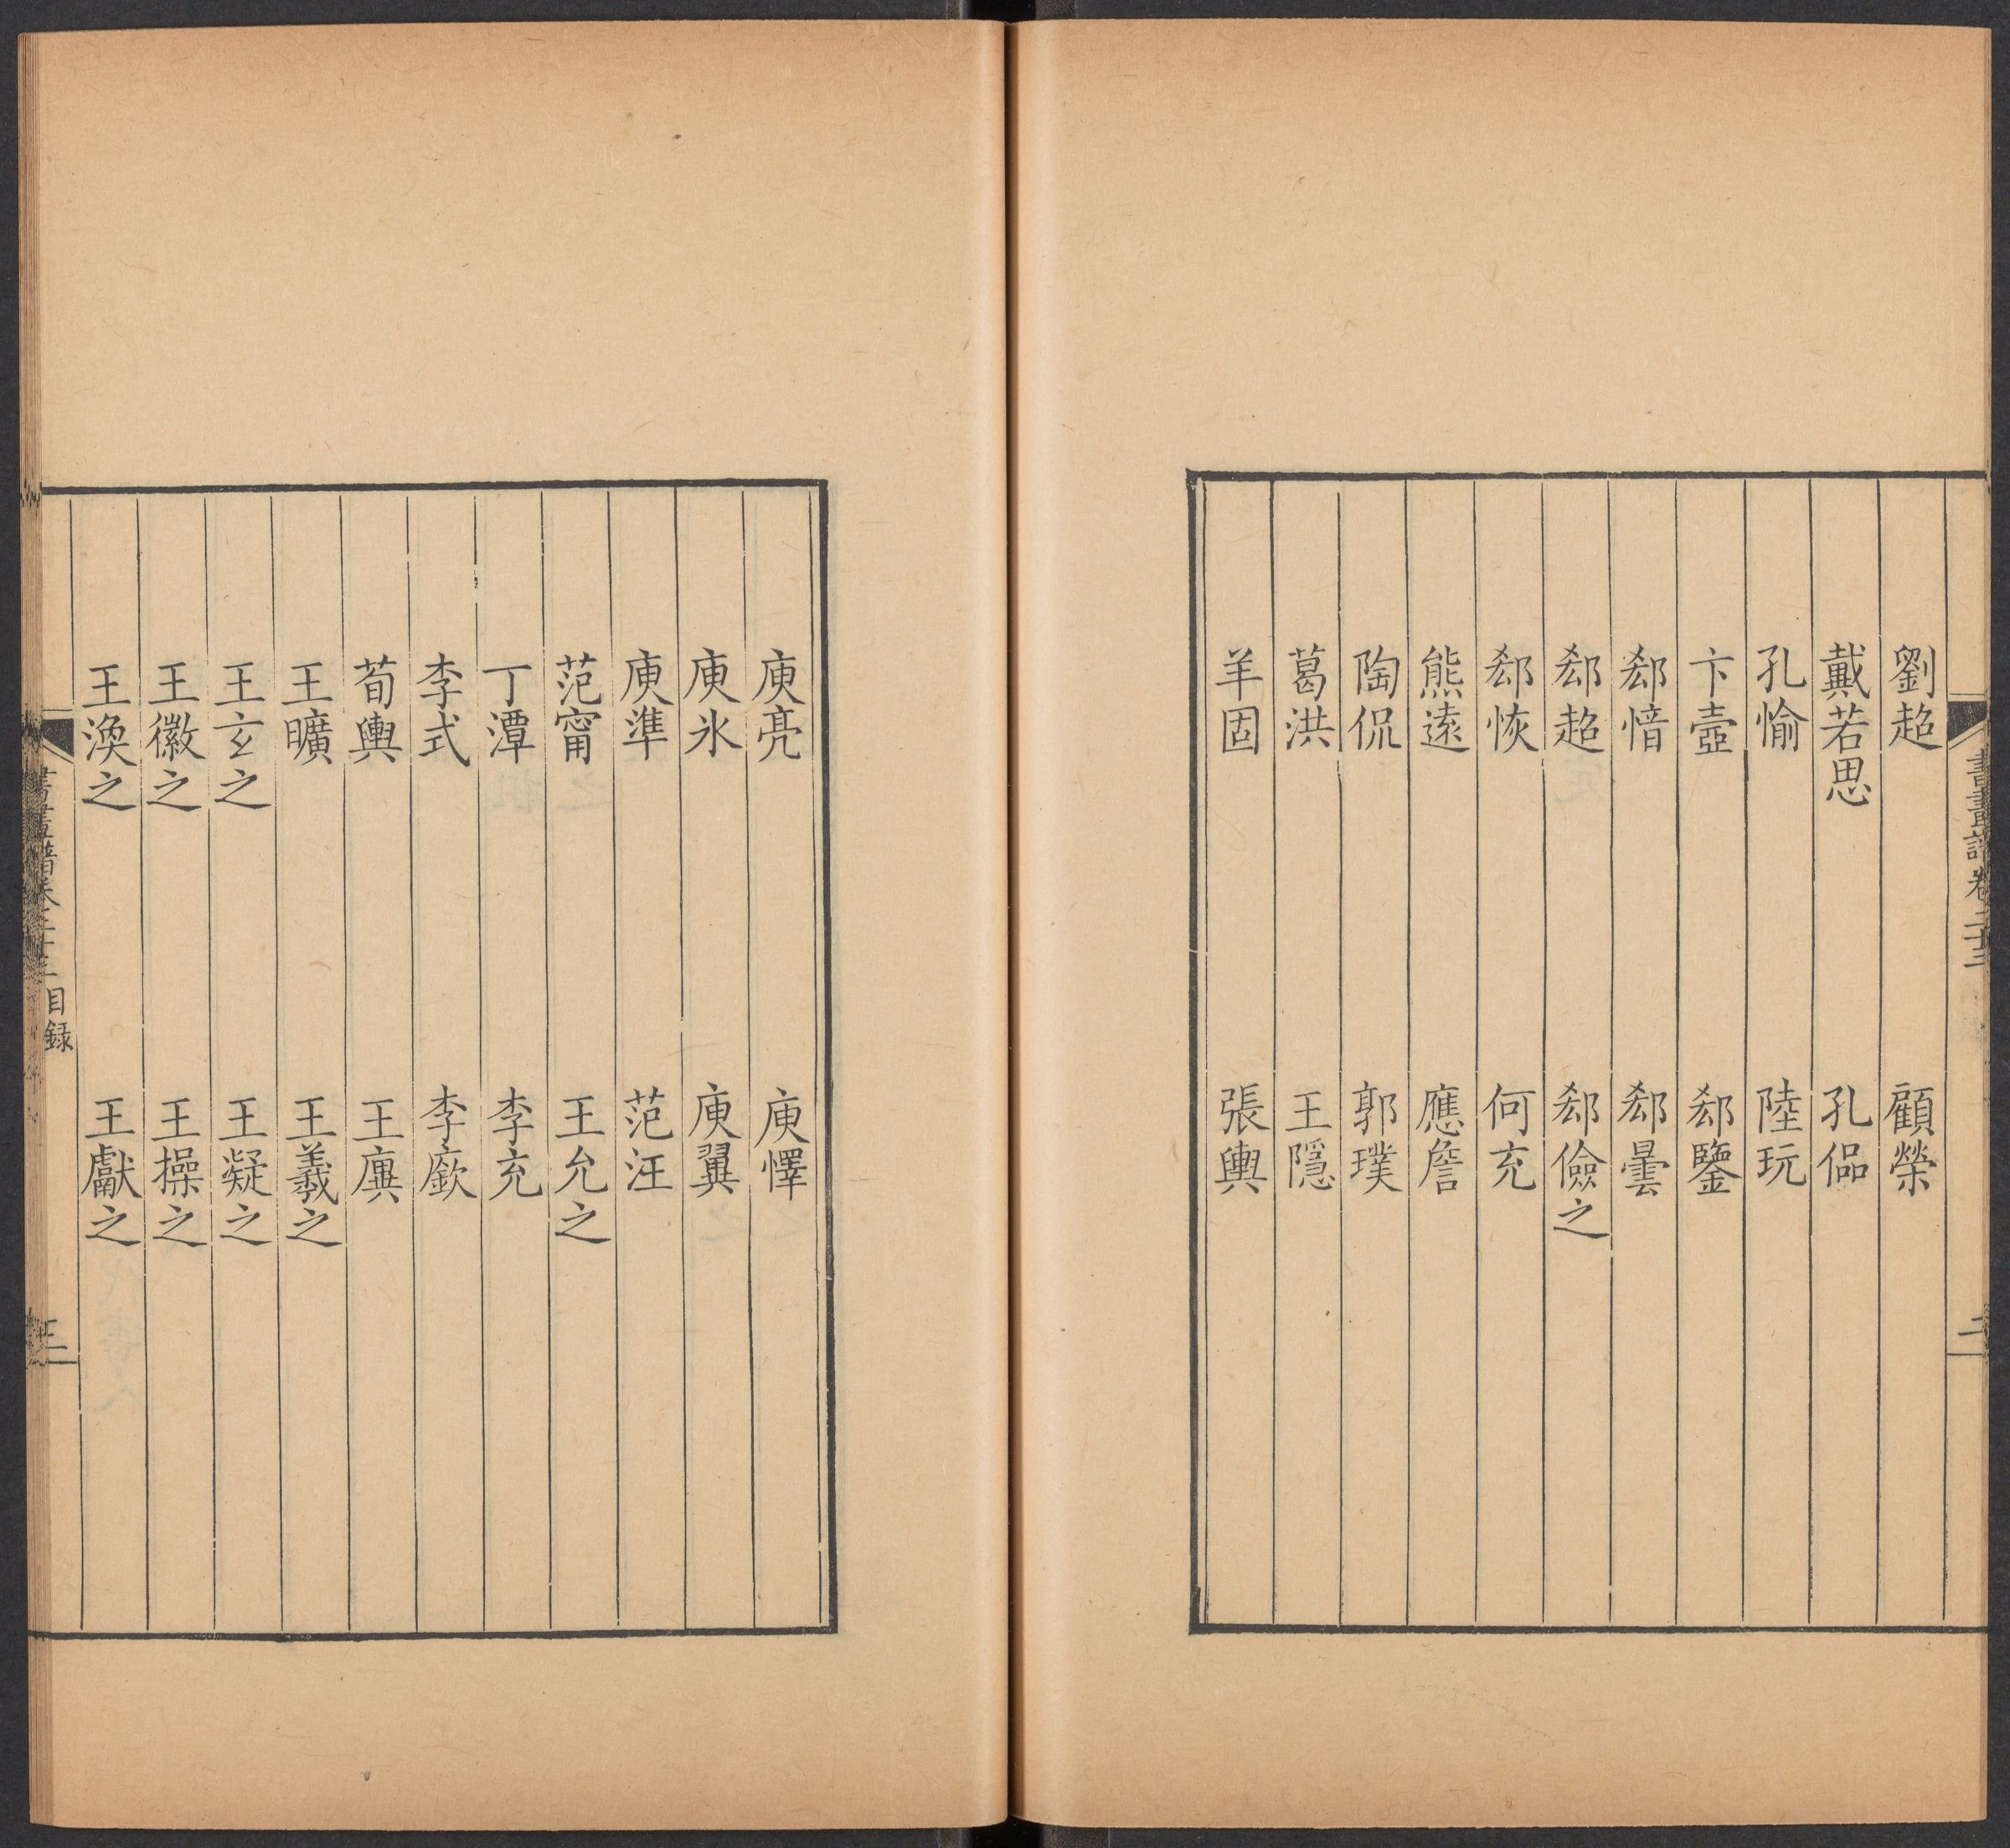 劉超 顧榮
戴若思 孔侃
孔愉 陸玩
卞壼 郄鑒
郄愔 郄曇
郄超 郄儉之
郄恢 何充
熊遠 應詹
陶侃 郭璞
葛洪 王隱
羊固 張輿
庾亮 庾懌
庾氷 庾翼
庾準 范汪
范甯 王允之
丁潭 李充
李式 李廞
荀輿 王廙
王曠 王羲之
王玄之 王凝之
王徽之 王操之
王渙之 王獻之
書畫譜卷二十三 目録
三